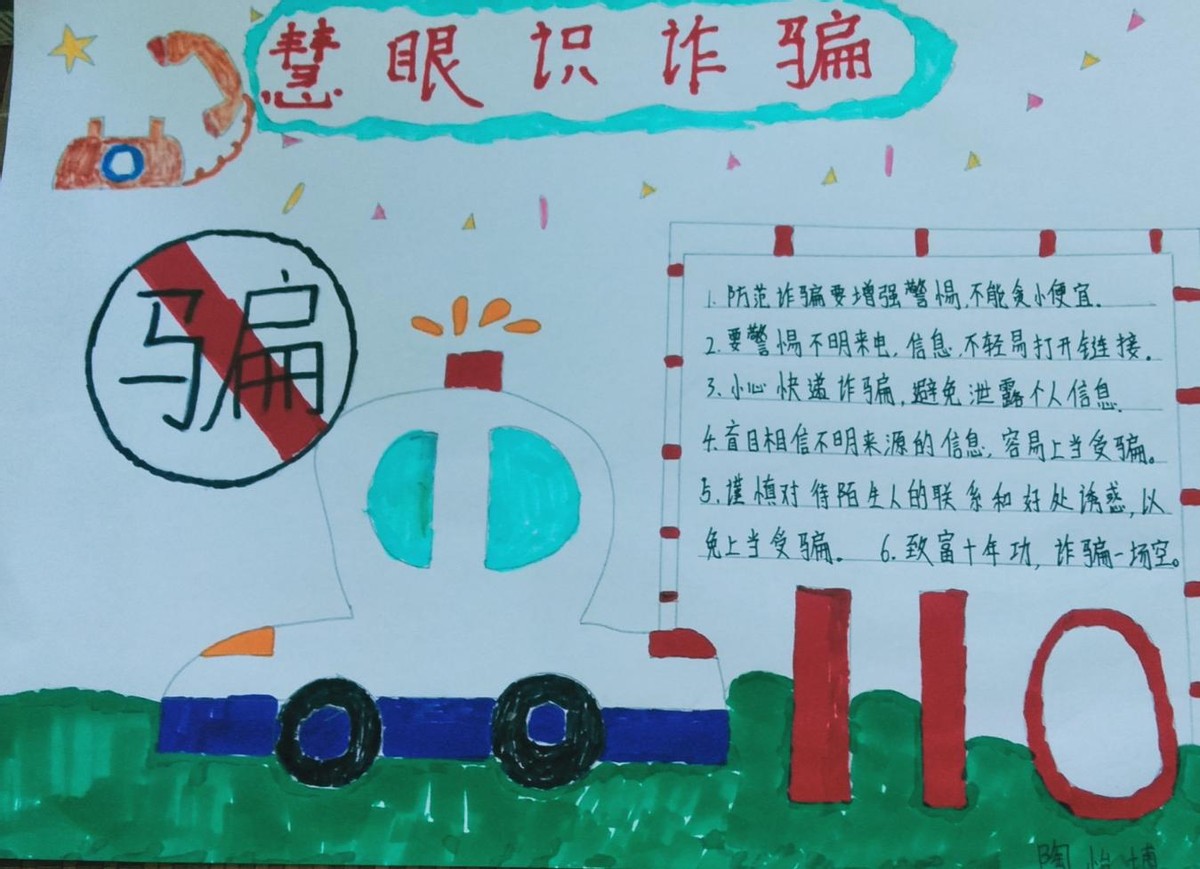 慧眼识诈骗
骗
1. 防范诈骗要增强警惕,不能贪小便宜.
2. 要警惕不明来电,信息,不轻易打开链接。
3. 小心快递诈骗,避免泄露个人信息.
4. 盲目相信不明来源的信息,容易上当受骗。
5. 谨慎对待陌生人的联系和好处诱惑,以
免上当受骗。 6. 致富十年功,诈骗一场空。
110
陶怡博